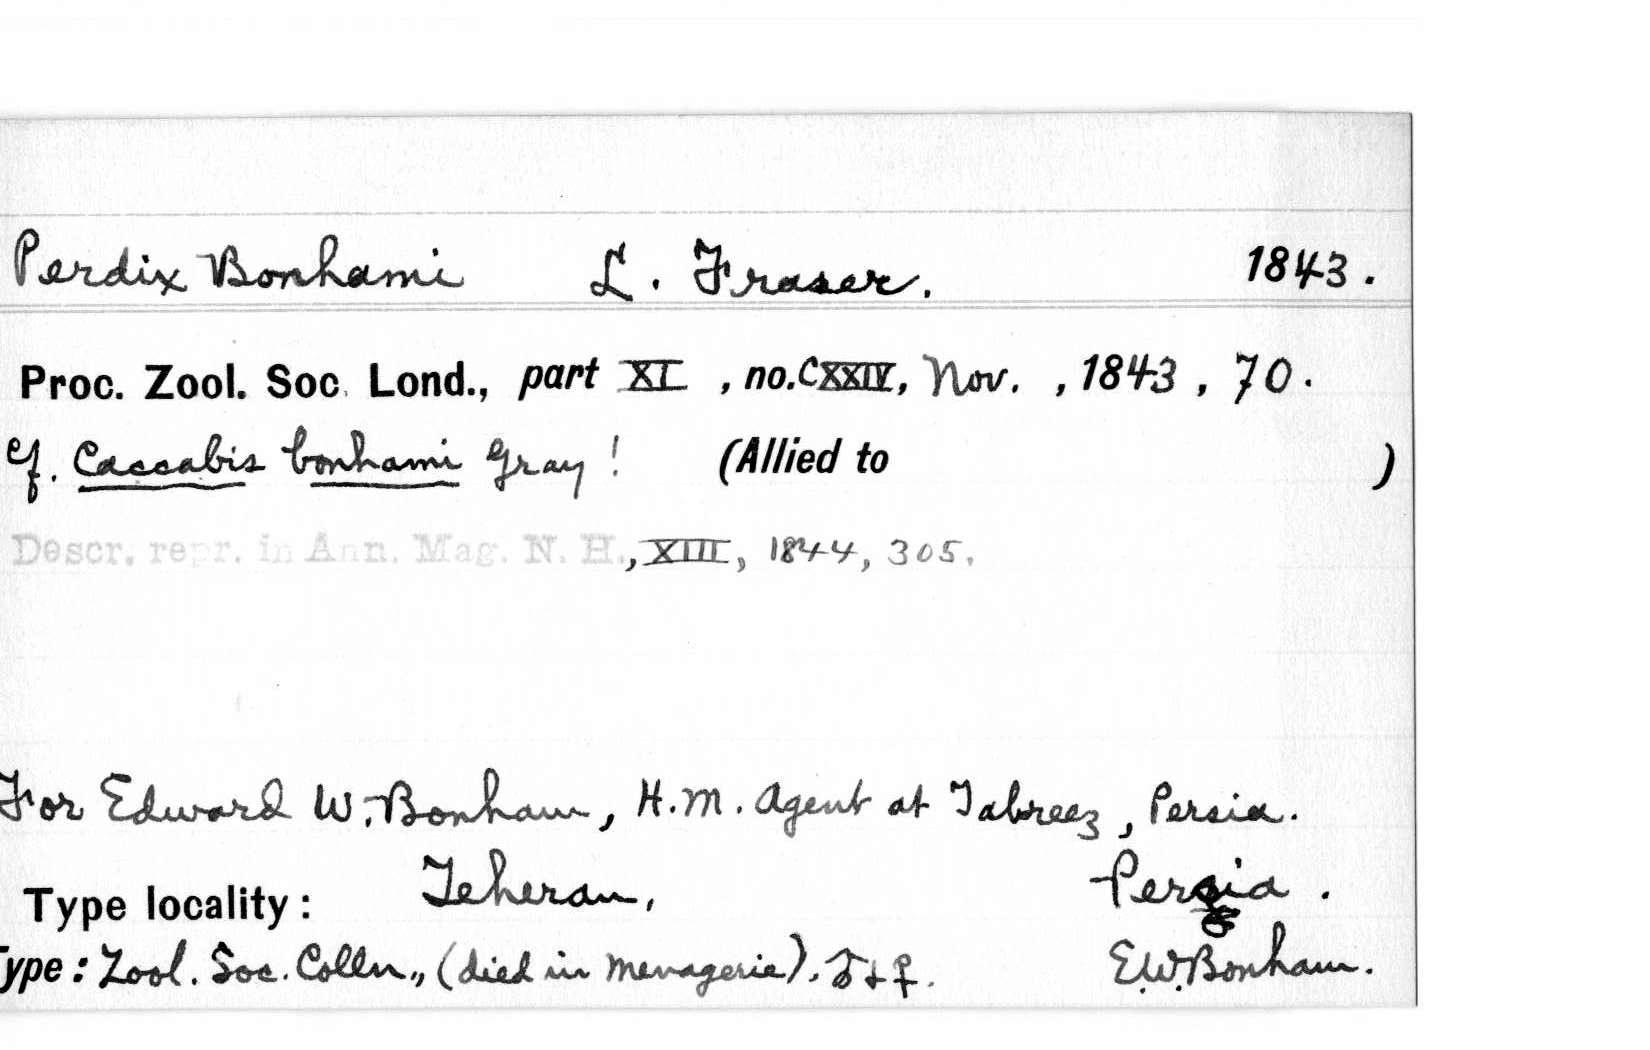 Perdix Bonhami L. Fraser. 1843.
Proc. Zool. Soc. Lond., part XI, no. CXXIV, Nov., 1843, 70.
cf. Caccabis bonhami Gray! (Allied to )
Descr. repr. in Ann. Mag. N. H., XIII, 1844, 305.
For Edward W. Bonham, H.M. Agent at Tabreez, Persia.
Type locality: Teheran, Persia.
Type: Zool. Soc. Colln., (died in menagerie). ♂ + ♀. E.W. Bonham.